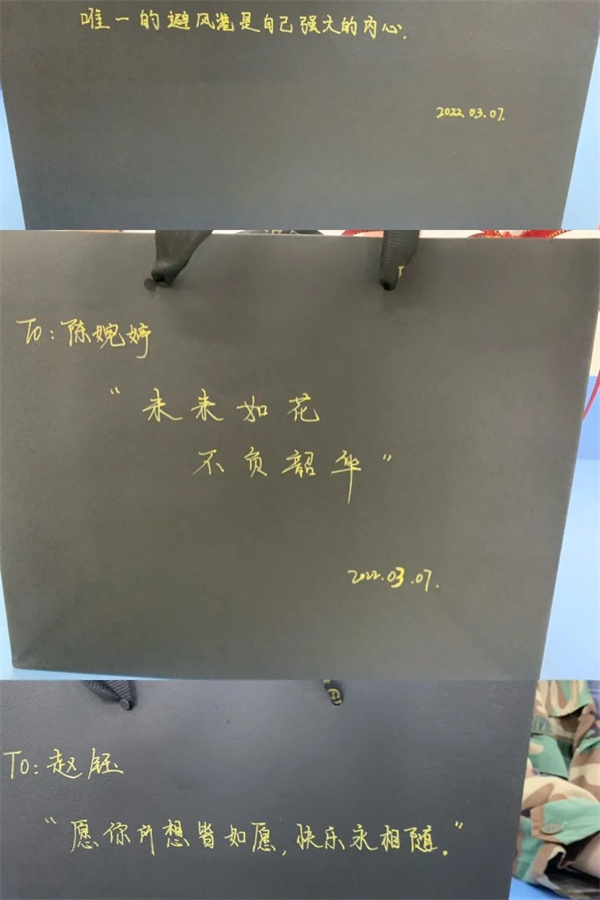 唯一的避风港是自己强大的内心.
2022.03.07.
To:陈婉婷
“未来如花
不负韶华”
2022.03.07.
To:赵钰
“愿你所想皆如愿,快乐永相随.”